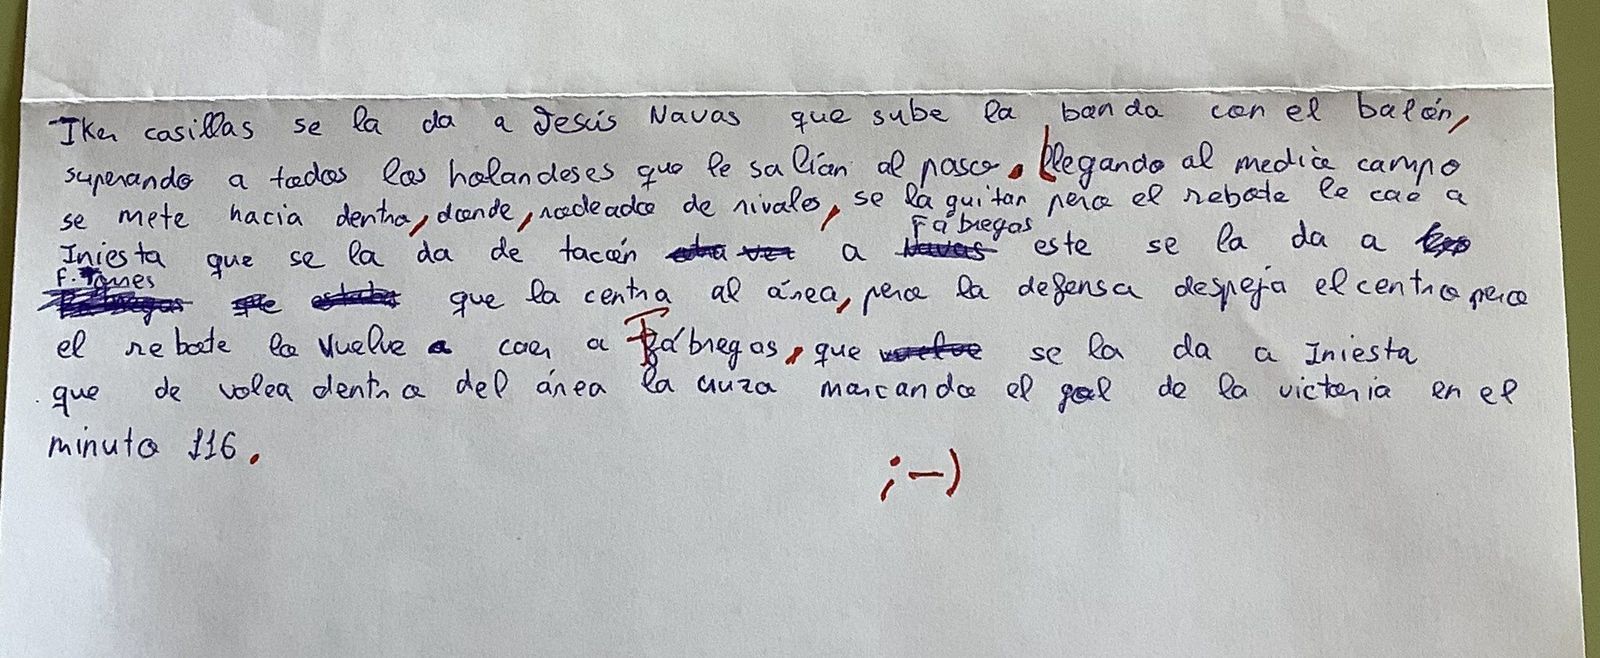 Iker casillas se la da a Jesús Navas que sube la banda con el balón,
superando a todos los holandeses que le salían al paso. Llegando al medio campo
se mete hacia dentro, donde, rodeado de rivales, se la quitan pero el rebote le cae a
Fábregas
Iniesta que se la da de tacón otra vez a Navas este se la da a
F. Torres
Fábregas que estaba que la centra al área, pero la defensa despeja el centro pero
el rebote lo vuelve a caer a Fábregas, que vuelve se la da a Iniesta
que de volea dentro del área la cruza marcando el gol de la victoria en el
minuto 116.
;-)